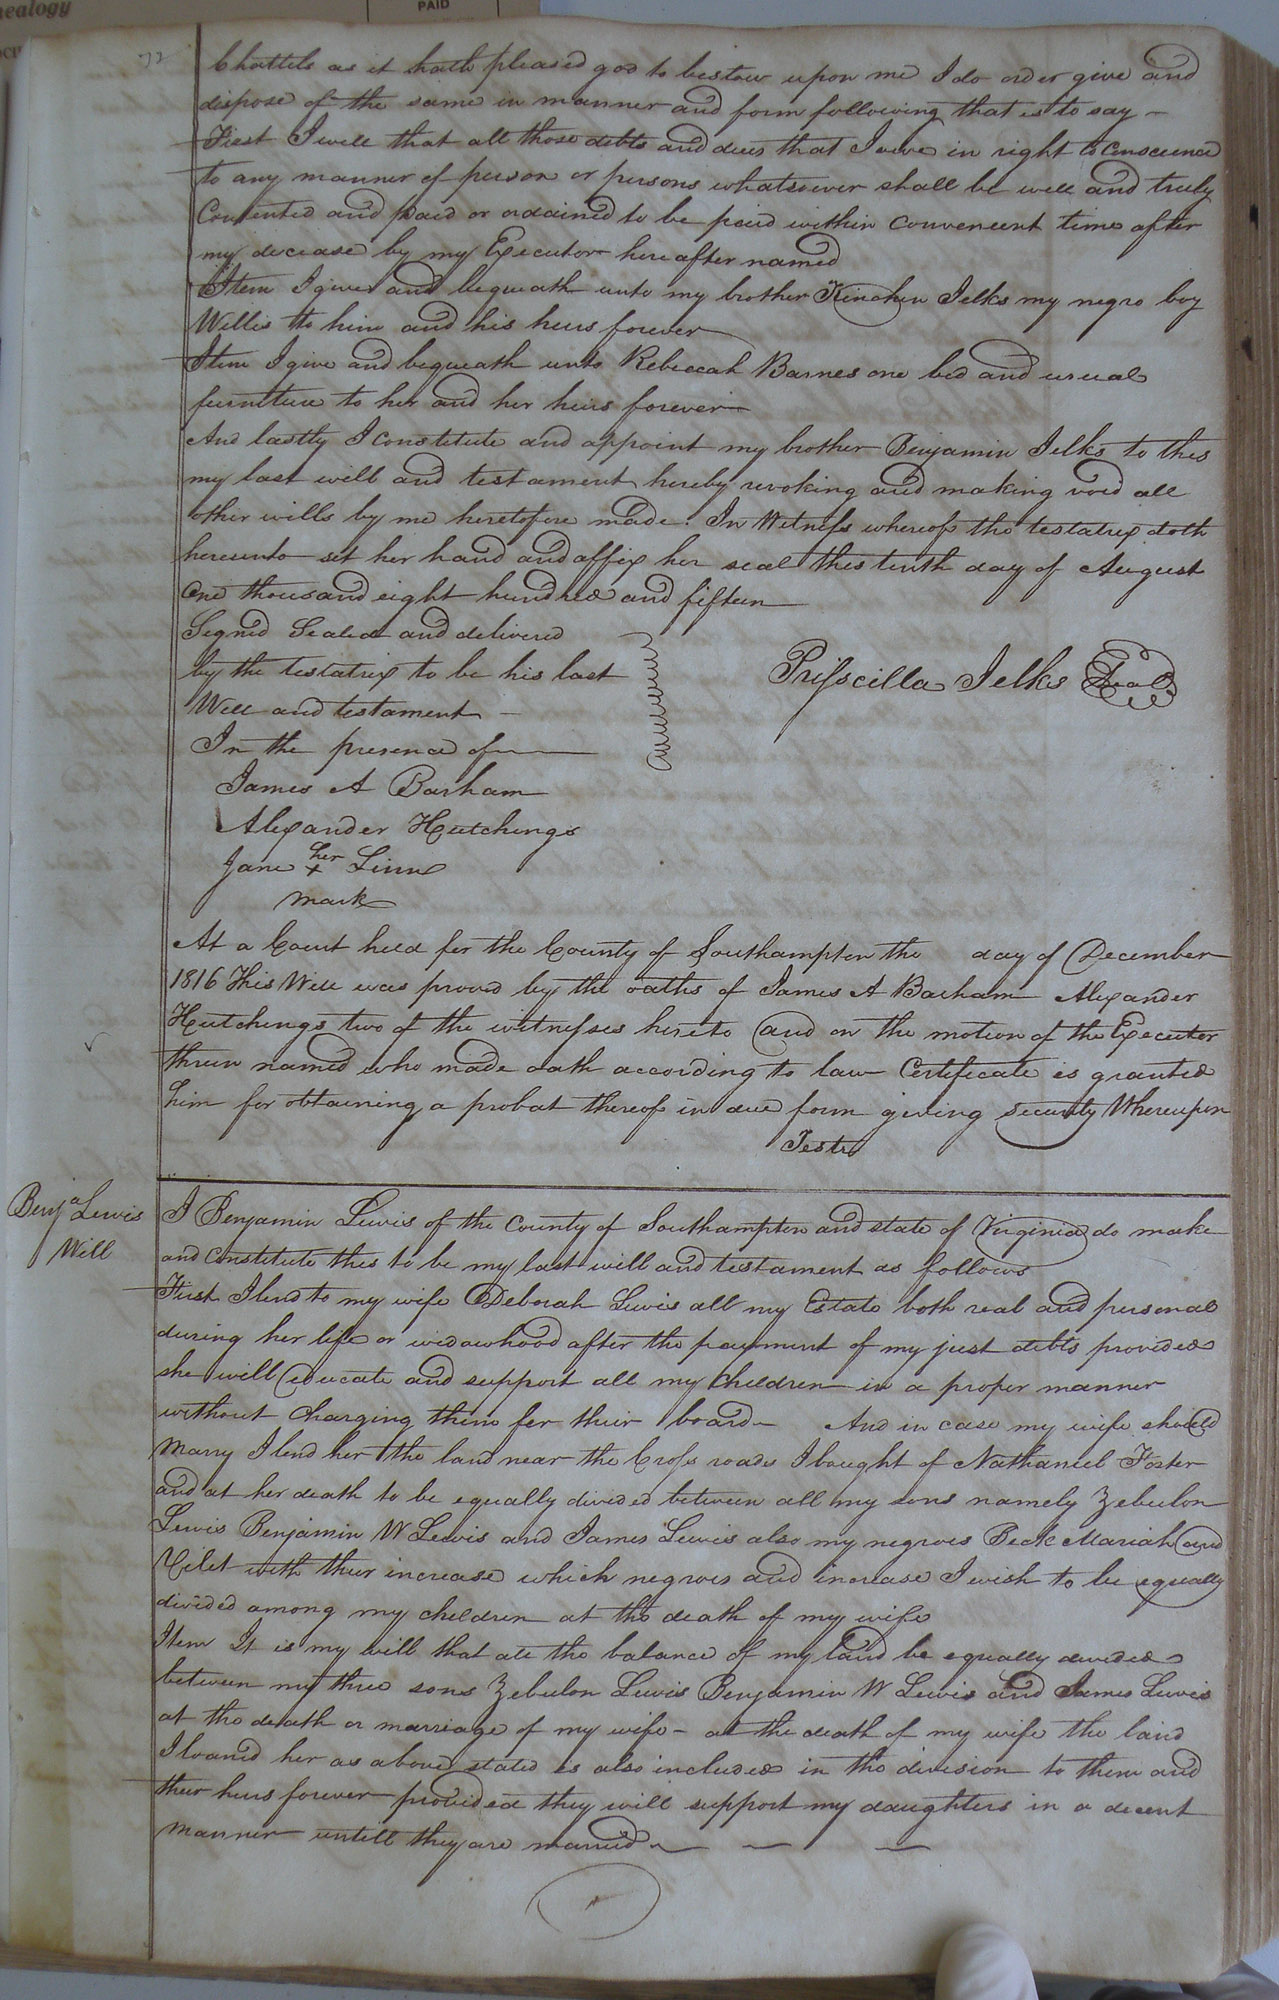 nealogy
PAID
72
Chattels as it hath pleased god to bestow upon me I do order give and
dispose of the same in manner and form following that is to say –
First I will that all those debts and dues that I owe in right to conscience
to any manner of person or persons whatsoever shall be well and truly
Contented and paid or ordained to be paid within convenient time after
my decease by my Executor hereafter named
Item I give and bequeath unto my brother Kinchen Jelks my negro boy
Willis to him and his heirs forever
Item I give and bequeath unto Rebeccah Barnes one bed and usual
furniture to her and her heirs forever
And lastly I constitute and appoint my brother Benjamin Jelks to this
my last will and testament hereby revoking and making void all
other wills by me heretofore made. In Witness whereof the testatrix doth
hereunto set her hand and affix her seal this tenth day of August
One thousand eight hundred and fifteen
Signed Sealed and delivered
by the testatrix to be his last
Will and testament –
In the presence of
Prisscilla Jelks Seal
James A Barham
Alexander Hutchings
Jane her x Linn
mark
At a Court held for the County of Southampton the day of December
1816 This Will was proved by the oaths of James A Barham Alexander
Hutchings two of the witnesses hereto and on the motion of the Executor
therein named who made oath according to law Certificate is granted
him for obtaining a probat thereof in due form giving security Whereupon
Teste
Benja Lewis
Will
I Benjamin Lewis of the County of Southampton and state of Virginia do make
and constitute this to be my last will and testament as follows
First I lend to my wife Deborah Lewis all my Estate both real and personal
during her life or widowhood after the payment of my just debts provided
she will educate and support all my children in a proper manner
without charging them for their board – And in case my wife should
Marry I lend her the land near the Cross roads I bought of Nathaniel Foster
and at her death to be equally divided between all my sons namely Zebulon
Lewis Benjamin W Lewis and James Lewis also my negroes Beck Mariah and
Vilet with their increase which negroes and increase I wish to be equally
divided among my children at the death of my wife
Item It is my will that all the balance of my land be equally divided
between my three sons Zebulon Lewis Benjamin W Lewis and James Lewis
at the death or marriage of my wife – at the death of my wife the land
I loaned her as above stated is also included in the division to them and
their heirs forever provided they will support my daughters in a decent
manner untill they are married